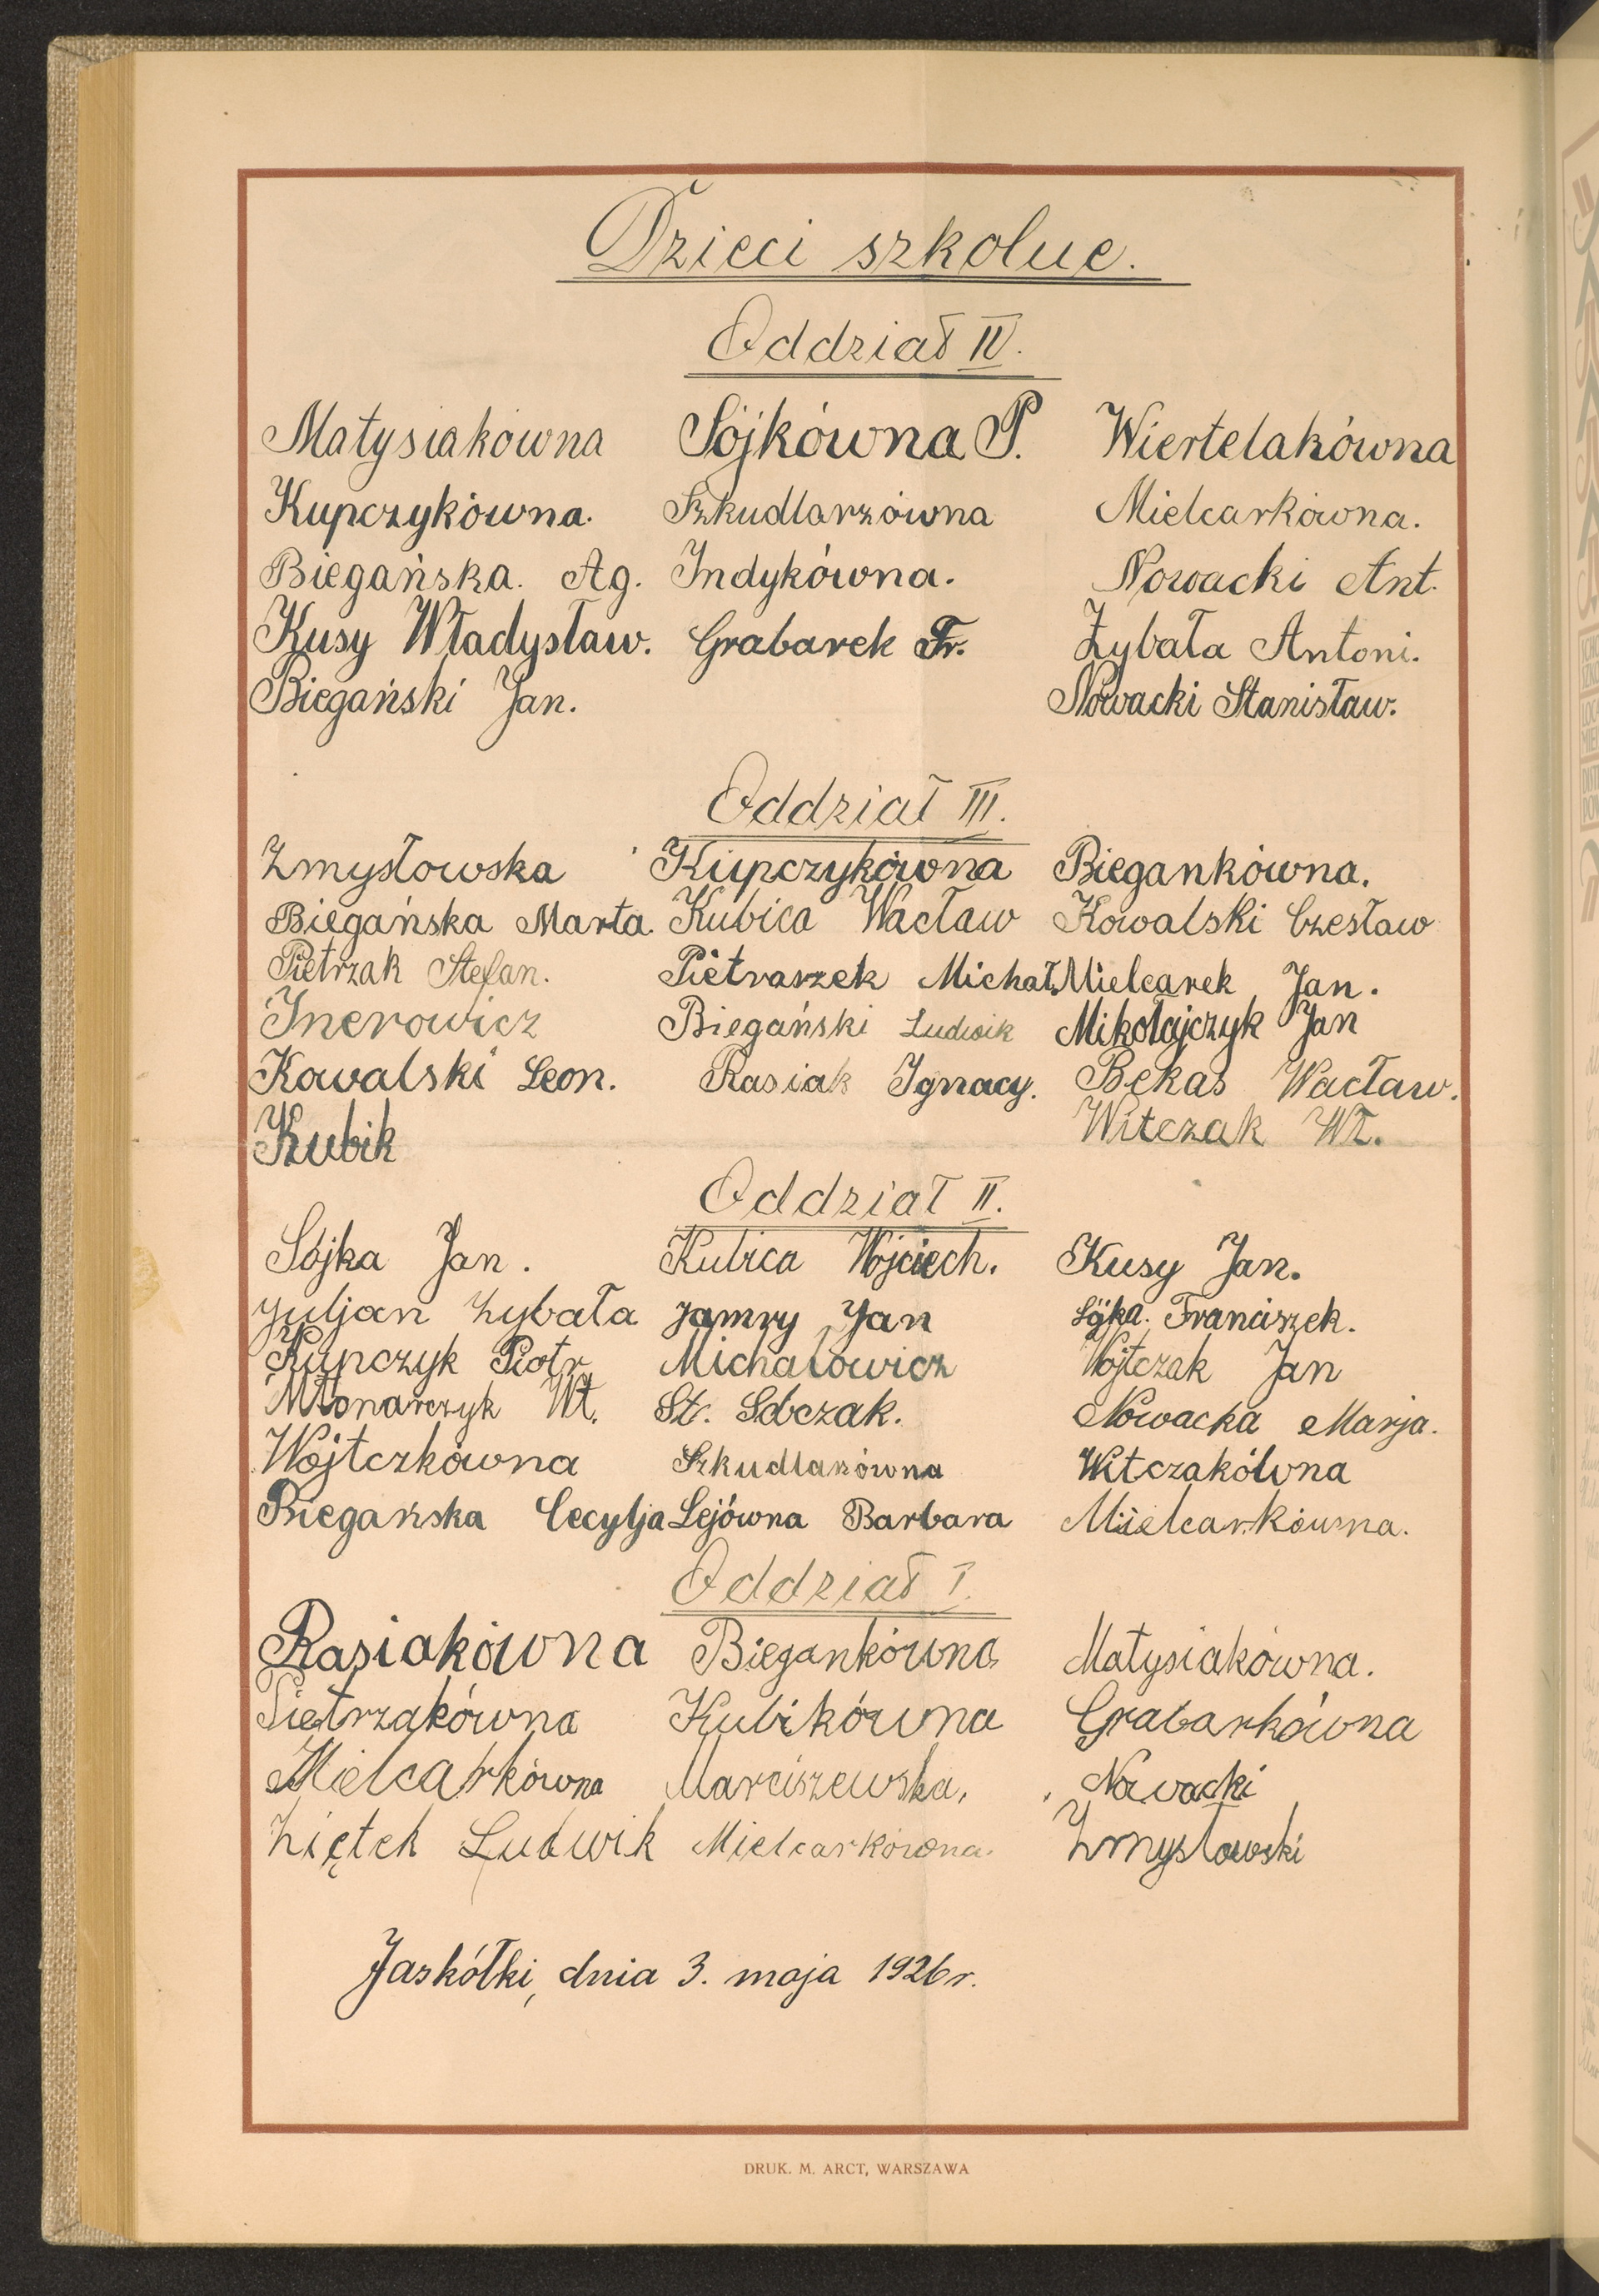 Dzieci szkolne.
Oddział IV.
Matysiakówna Sójkówna P. Wiertelakówna
Kupczykówna. Szkudlarzówna Mielcarkówna.
Biegańska. Ag. Indykówna. Nowacki Ant.
Kusy Władysław. Grabarek Fr. Zybała Antoni.
Biegański Jan. Nowacki Stanisław.
Oddział III.
Zmysłowska Kupczykówna Biegankówna.
Biegańska Marta. Kubica Wacław Kowalski Czesław
Pietrzak Stefan. Pietraszek Michał. Mielcarek Jan.
Inerowicz Biegański Ludwik Mikołajczyk Jan
Kowalski Leon. Rasiak Ignacy. Bekas Wacław.
Kubik Witczak Wł.
Oddział II.
Sójka Jan. Kubica Wojciech. Kusy Jan.
Juljan Zybała Jamry Jan Sójka. Franciszek.
Kupczyk Piotr Michałowicz Wojtczak Jan
Młonarczyk Wł. St. Sobczak. Nowacka Marja.
Wojtczkówna Szkudlarzówna Witczakówna
Biegańska Cecylja Lejówna Barbara Mielcarkówna.
Oddział I.
Rasiakówna Biegankówna Matysiakówna.
Pietrzakówna Kubikówna Grabarkówna
Mielcarkówna Marciszewska, Nowacki
Ziętek Ludwik Mielcarkówna. Zmysłowski
Jaskółki, dnia 3. maja 1926 r.
DRUK. M. ARCT, WARSZAWA